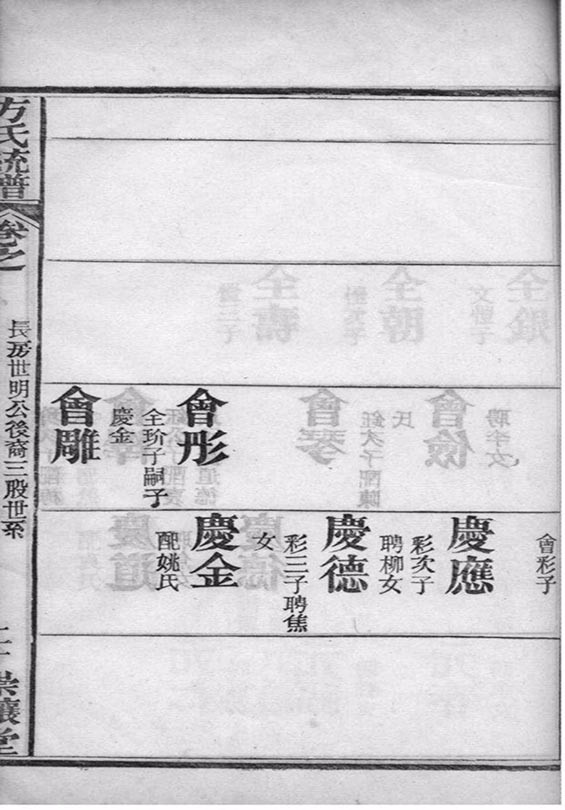 會彤
全玠子嗣子
慶金
會雕
會彩子
慶應
彩次子
聘柳女
慶德
彩三子聘焦
女
慶金
配姚氏
方氏統譜
卷之
長房世明公後裔三股世系